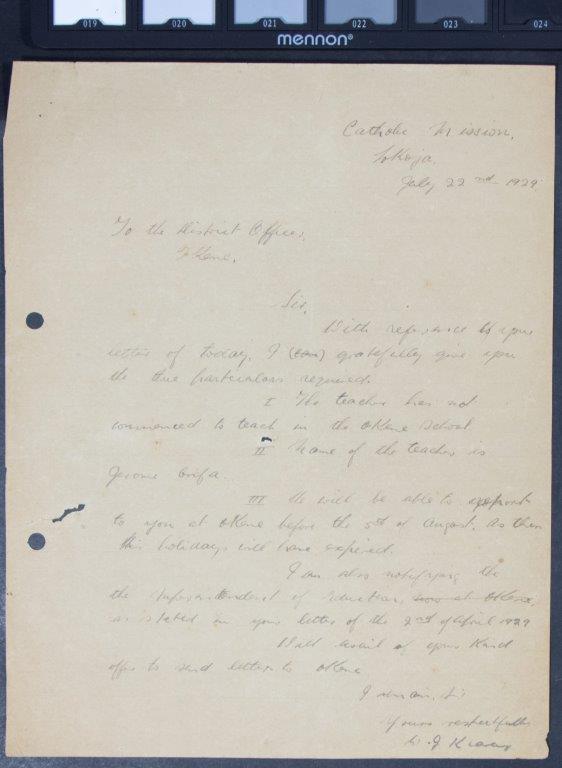 019 020 021 022 023 024
mennon®
Catholic Mission,
Lokoja.
July 22nd 1929
To the District Officer,
Okene.
Sir,
With reference to your
letter of today, I (can) gratefully give you
the three particulars required.
I The teacher has not
commenced to teach in the Okene School
II Name of the teacher is
Jerome
III He will be able to report
to you at Okene before the 5th of August, as then
his holidays will have expired.
I am also notifying the
the Superintendent of Education, now at Okene,
as stated in your letter of the 2nd of April 1929
Will avail of your kind
offer to send letters to Okene
I remain, Sir
Yours respectfully